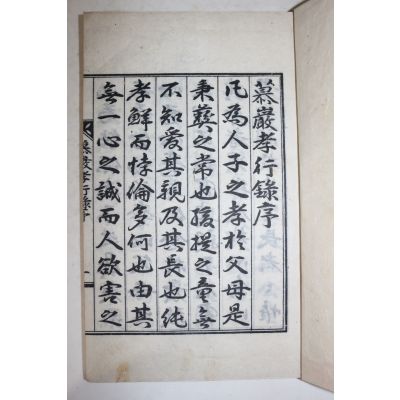 慕巖孝行錄序
凡為人子之孝於父母是
秉彛之常也孩提之童無
不知愛其親及其長也純
孝鮮而悖倫多何也由其
無一心之誠而人欲害之
慕巖孝行錄序 一